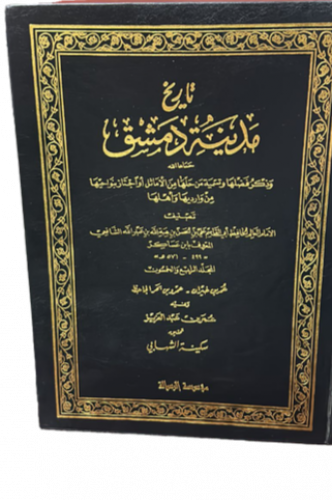 تاريخ
مدينة دمشق
حماها الله
وذكر فضلها وتسمية من حلها من الأماثل أو اجتاز بنواحيها
من وارديها وأهلها
تصنيف
الإمام العالم الحافظ أبي القاسم علي بن الحسن بن هبة الله بن عبد الله الشافعي
المعروف بابن عساكر
٤٩٩ - ٥٧١ هـ
المجلد الرابع والخمسون
وفيه
عمر بن عبد العزيز
تحقيق
سكينة الشهابي
مؤسسة الرسالة